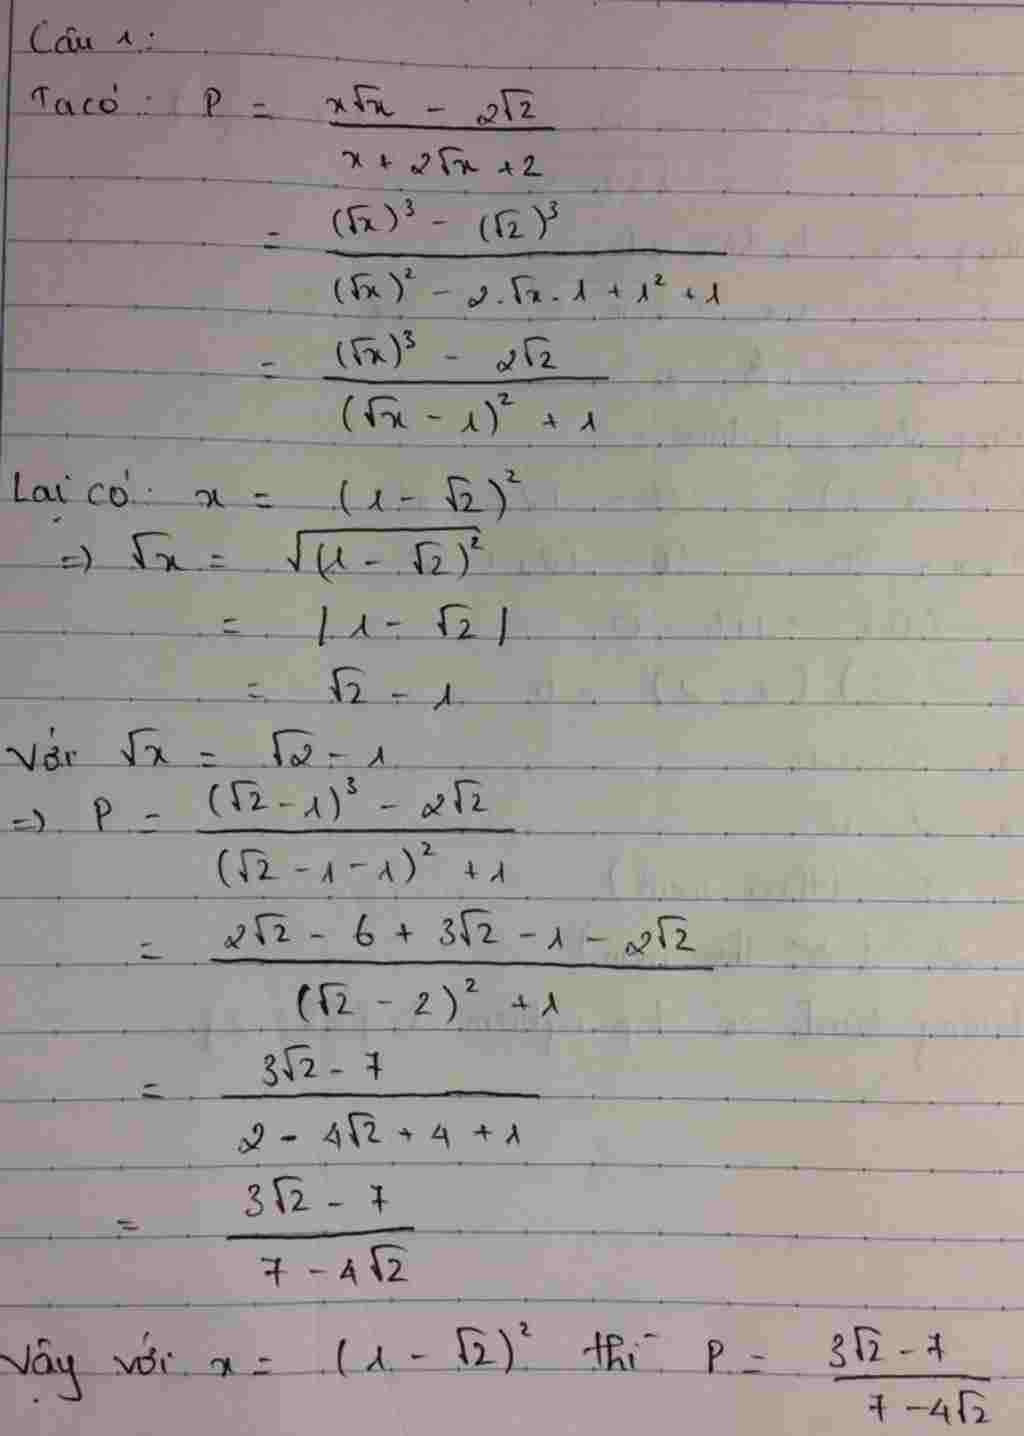 Câu 1:
Ta có: P = \frac{x\sqrt{x} - 2\sqrt{2}}{x + 2\sqrt{x} + 2}
= \frac{(\sqrt{x})^3 - (\sqrt{2})^3}{(\sqrt{x})^2 - 2.\sqrt{x}.1 + 1^2 + 1}
= \frac{(\sqrt{x})^3 - 2\sqrt{2}}{(\sqrt{x} - 1)^2 + 1}
Lại có: x = (1 - \sqrt{2})^2
=> \sqrt{x} = \sqrt{(1 - \sqrt{2})^2}
= |1 - \sqrt{2}|
= \sqrt{2} - 1
Với \sqrt{x} = \sqrt{2} - 1
=> P = \frac{(\sqrt{2} - 1)^3 - 2\sqrt{2}}{(\sqrt{2} - 1 - 1)^2 + 1}
= \frac{2\sqrt{2} - 6 + 3\sqrt{2} - 1 - 2\sqrt{2}}{(\sqrt{2} - 2)^2 + 1}
= \frac{3\sqrt{2} - 7}{2 - 4\sqrt{2} + 4 + 1}
= \frac{3\sqrt{2} - 7}{7 - 4\sqrt{2}}
Vậy với x = (1 - \sqrt{2})^2 thì P = \frac{3\sqrt{2} - 7}{7 - 4\sqrt{2}}